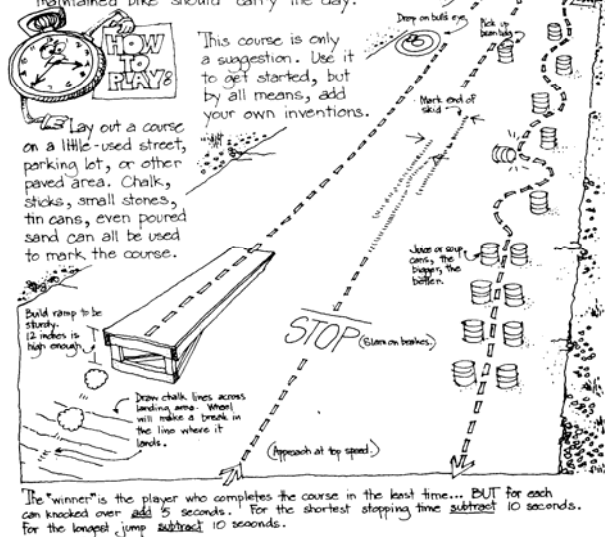 maintained bike should carry the day.
HOW
TO
PLAY:
This course is only
a suggestion. Use it
to get started, but
by all means, add
your own inventions.
Lay out a course
on a little-used street,
parking lot, or other
paved area. Chalk,
sticks, small stones,
tin cans, even poured
sand can all be used
to mark the course.
Drop on bulls eye
Pick up
bean bag
Mark end of
skid
Juice or soup
cans, the
bigger, the
better.
Build ramp to be
sturdy.
12 inches is
high enough.
STOP (Slam on brakes.)
Draw chalk lines across
landing area. Wheel
will make a break in
the line where it
lands.
(Approach at top speed.)
The "winner" is the player who completes the course in the least time... BUT for each
can knocked over add 5 seconds. For the shortest stopping time subtract 10 seconds.
For the longest jump subtract 10 seconds.